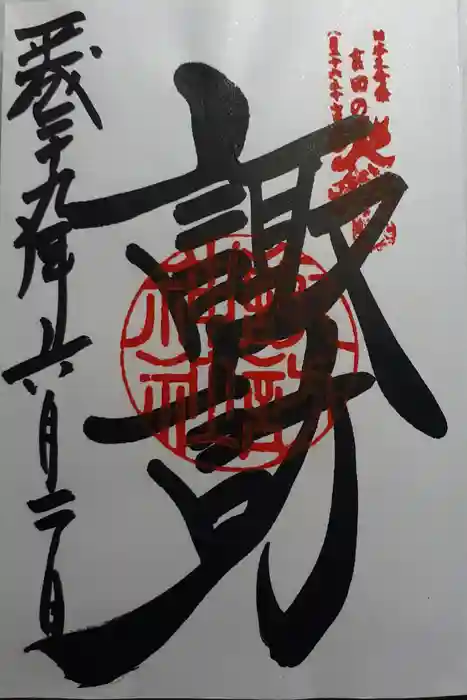 日本三奇祭
吉田の火祭
諏訪
諏訪神社
平成二十九年六月二日